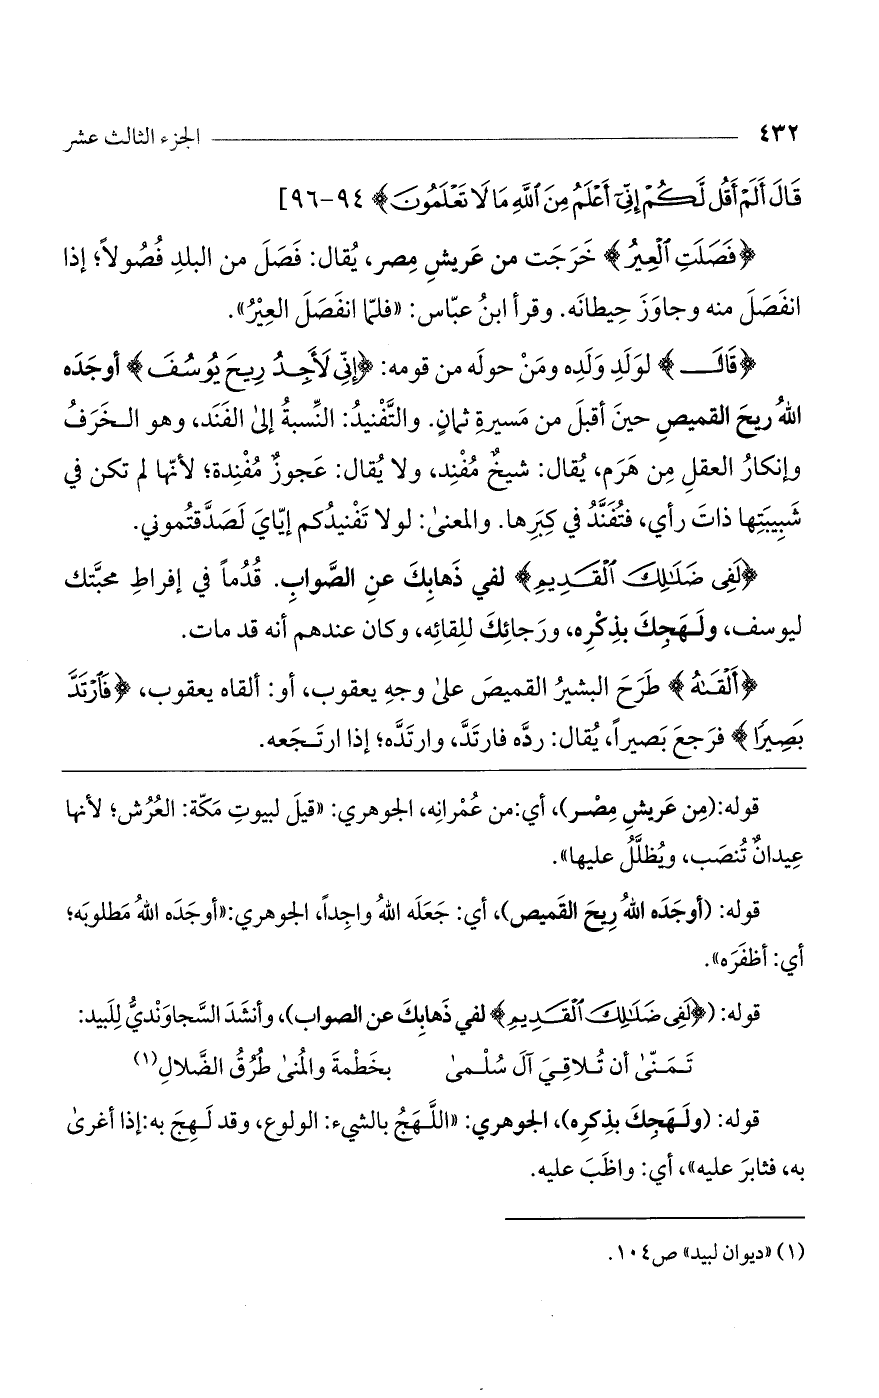 ٤٣٢ الجزء الثالث عشر
قَالَ أَلَمْ أَقُل لَّكُمْ إِنِّي أَعْلَمُ مِنَ ٱللَّهِ مَا لَا تَعْلَمُونَ﴾ ٩٤-٩٦]
﴿فَصَلَتِ ٱلْعِيرُ﴾ خَرَجَت من عَريشِ مِصر، يُقال: فَصَلَ من البلدِ فُصُولاً؛ إذا
انفَصَلَ منه وجاوَزَ حِيطانَه. وقرأ ابنُ عبّاس: «فلمّا انفَصَلَ العِيْرُ».
﴿قَالَ﴾ لوَلَدِ وَلَدِه ومَنْ حولَه من قومه: ﴿إِنِّي لَأَجِدُ رِيحَ يُوسُفَ﴾ أوجَدَه
اللهُ ريحَ القميصِ حينَ أقبلَ من مَسيرةِ ثمانٍ. والتَّفْنيدُ: النِّسبةُ إلىٰ الفَنَد، وهو الخَرَفُ
وإنكارُ العقلِ مِن هَرَم، يُقال: شيخٌ مُفْنِد، ولا يُقال: عَجوزٌ مُفْنِدة؛ لأنّها لم تكن في
شَبِيبَتِها ذاتَ رأي، فتُفَنَّدُ في كِبَرِها. والمعنىٰ: لولا تَفْنيدُكم إيّايَ لَصَدَّقتُموني.
﴿لَفِى ضَلَٰلِكَ ٱلْقَدِيمِ﴾ لفي ذَهابِكَ عنِ الصَّوابِ. قُدُماً في إفراطِ محبَّتك
ليوسف، ولَهَجِكَ بذِكْرِه، ورَجائِكَ للِقائِه، وكان عندهم أنه قد مات.
﴿أَلْقَىٰهُ﴾ طَرَحَ البشيرُ القميصَ علىٰ وجهِ يعقوب، أو: ألقاه يعقوب، ﴿فَٱرْتَدَّ
بَصِيرًا﴾ فرَجعَ بَصيراً، يُقال: ردَّه فارتَدَّ، وارتَدَّه؛ إذا ارتَجَعه.
قوله:(مِن عَريشِ مِصْر)، أي:من عُمْرانِه، الجوهري: «قيلَ لبيوتِ مَكّة: العُرُش؛ لأنها
عِيدانٌ تُنصَب، ويُظلَّلُ عليها».
قوله: (أوجَدَه اللهُ رِيحَ القَميص)، أي: جَعَلَه اللهُ واجِداً، الجوهري:«أوجَدَه اللهُ مَطلوبَه؛
أي: أظفَرَه».
قوله: (﴿لَفِى ضَلَٰلِكَ ٱلْقَدِيمِ﴾ لفي ذَهابِكَ عن الصواب)، وأنشَدَ السَّجاوَنْديُّ لِلَبيد:
تَمَنّىٰ أن تُلاقِيَ آلَ سُلْمىٰ بخَطْمةَ والمُنىٰ طُرُقُ الضَّلالِ(١)
قوله: (ولَهَجِكَ بذِكرِه)، الجوهري: «اللَّهَجُ بالشيء: الولوع، وقد لَهِجَ به:إذا أغرىٰ
به، فثابرَ عليه»، أي: واظَبَ عليه.
(١) «ديوان لبيد» ص١٠٤.